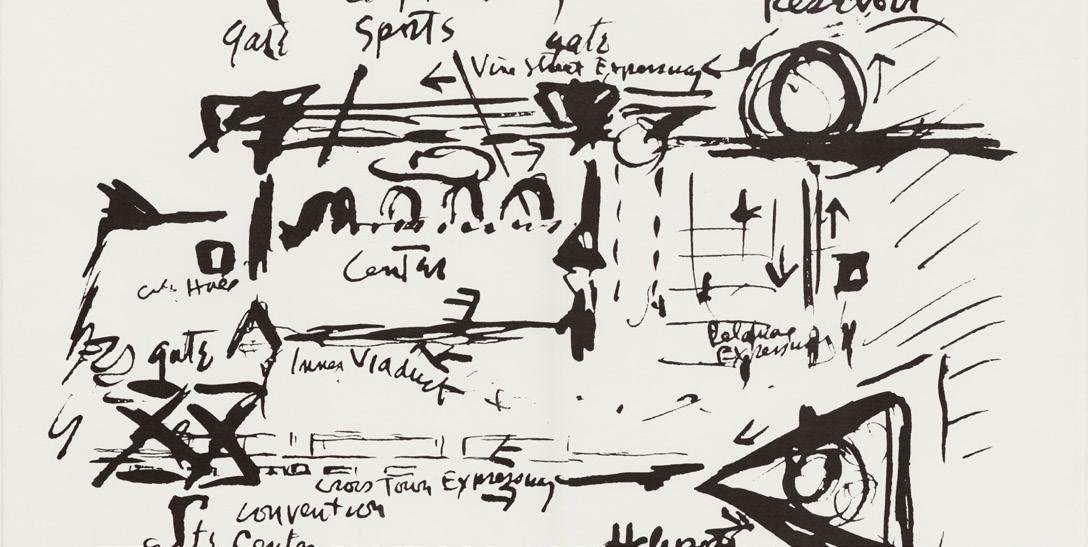 Reservoir
gate
Sports
gate
Vine Street Expressway
Center
City Hall
Delaware
Expressway
gate
Inner Viaduct
Cross Town Expressway
convention
Center
Heliport